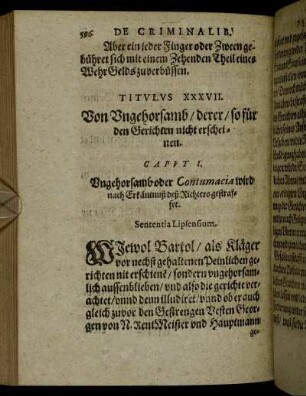 586 DE CRIMINALIB.
Aber ein jeder Finger oder Zween ge-
bühret sich mit einem Zehenden Theil eines
Wehr Gelds zu verbüssen.
TITVLVS XXXVII.
Von Vngehorsamb / derer / so für
den Gerichten nicht erschei-
nen.
CAPVT I.
Vngehorsamb oder Contumacia wird
nach Erkäntnuß deß Richters gestraf-
fet.
Sententia Lipsensium.
WIewol Bartol / als Kläger
vor nechst gehaltenen Peinlichen ge-
richten nit erschienē / sondern vngehorsam-
lich aussenblieben / vnd also die gerichte ver-
achtet / vnnd denn illudiret / vnnd ob er auch
gleich zuvor den Gestrengen Vesten Geor-
gen von N. RentMeister vnd Hauptmann
ge-